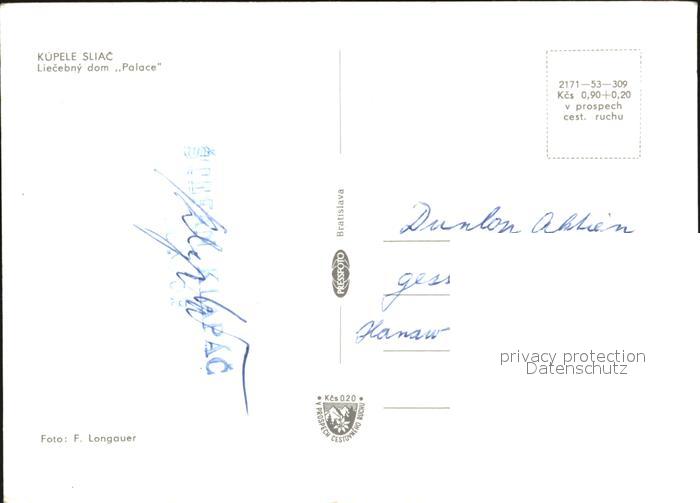 KÚPELE SLIAČ
Liečebný dom ,,Palace"
2171—53—309
Kčs 0,90+0,20
v prospech
cest. ruchu
Bratislava
PRESSFOTO
Dunlop Aktien
gess
Hanau
privacy protection
Datenschutz
Kčs 0.20
V PROSPECH CESTOVNÉHO RUCHU
Foto: F. Longauer